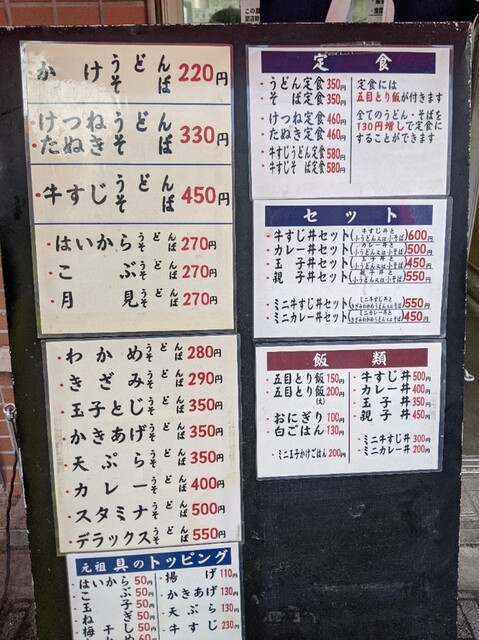 かけ うどん そば 220円
・けつねうどん
・たぬきそば 330円
・牛すじ うどん そば 450円
・はいから うどん そば 270円
・こぶ うどん そば 270円
・月見 うどん そば 270円
・わかめ うどん そば 280円
・きざみ うどん そば 290円
・玉子とじ うどん そば 350円
・かきあげ うどん そば 350円
・天ぷら うどん そば 350円
・カレー うどん そば 400円
・スタミナ うどん そば 500円
・デラックス うどん そば 550円
元祖 具のトッピング
はいから 50円
こぶ 50円
玉子 50円
ねぎ 50円
梅干
揚げ 110円
かきあげ 130円
天ぷら 130円
牛すじ 230円
定食
・うどん定食 350円
・そば定食 350円
・けつね定食 460円
・たぬき定食 460円
・牛すじうどん定食 580円
・牛すじそば定食 580円
定食には
五目とり飯が付きます
全てのうどん・そばを
130円増しで定食に
することができます
セット
・牛すじ丼セット(牛すじ丼と小うどん又は小そば) 600円
・カレー丼セット(カレー丼と小うどん又は小そば) 500円
・玉子丼セット(玉子丼と小うどん又は小そば) 450円
・親子丼セット(親子丼と小うどん又は小そば) 550円
・ミニ牛すじ丼セット 550円
・ミニカレー丼セット 450円
飯類
・五目とり飯 150円
・五目とり飯(大) 200円
・おにぎり 100円
・白ごはん 130円
・ミニ玉子かけごはん 200円
・牛すじ丼 500円
・カレー丼 400円
・玉子丼 350円
・親子丼 450円
・ミニ牛すじ丼 300円
・ミニカレー丼 200円